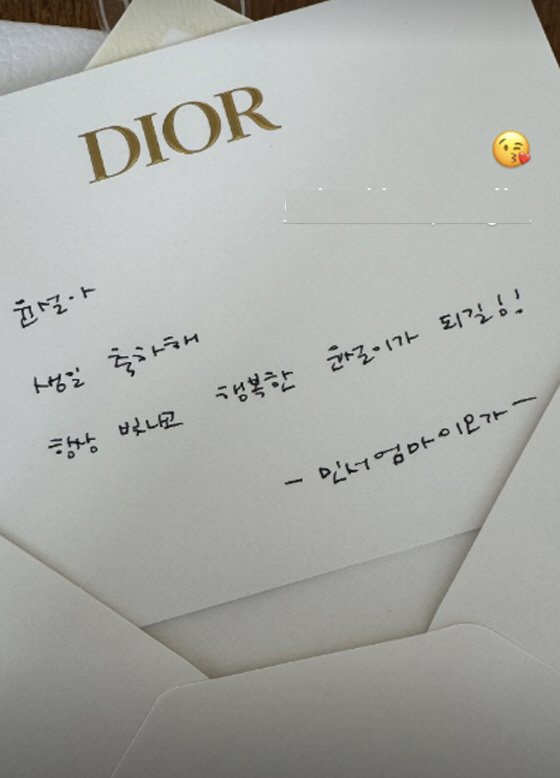 DIOR
윤설아
생일 축하해
항상 빛나고 행복한 윤설이가 되길!!
- 민서엄마이모가 -